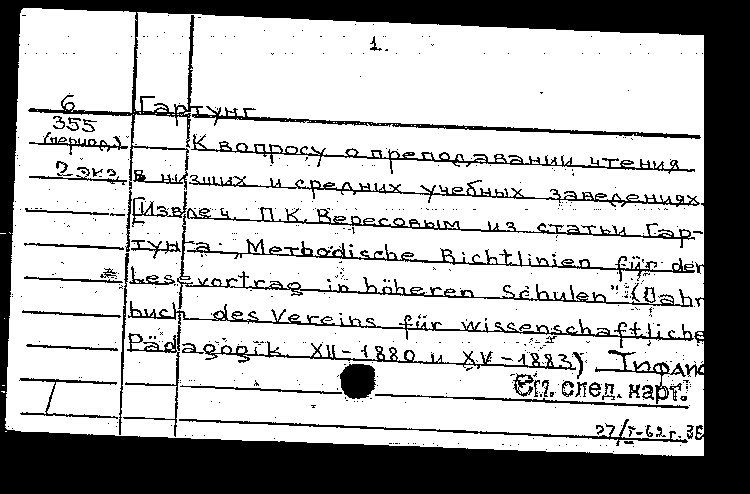 1.
6 Гартунг
355
(период.) К вопросу о преподавании чтения
2 экз. в низших и средних учебных заведениях.
[Извлеч. П.К. Вересовым из статьи Гар-
тунга: „Methodische Richtlinien für der
Lesevortrag in höheren Schulen" (Jahr
buch des Vereins für wissenschaftliche
Pädagogik XII-1880 и XV-1883). Тифлис
См. след. карт.
27/I-62г. ЗБ